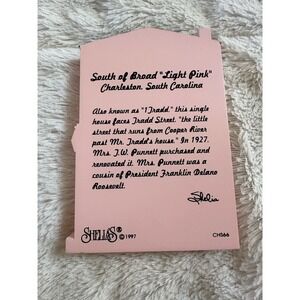 South of Broad "Light Pink"
Charleston, South Carolina
Also known as "1 Tradd," this single
house faces Tradd Street, "the little
street that runs from Cooper River
past Mr. Tradd's house." In 1927,
Mrs. T.W. Punnett purchased and
renovated it. Mrs. Punnett was a
cousin of President Franklin Delano
Roosevelt.
Shelia
SHELIA'S® ©1997
CHS66